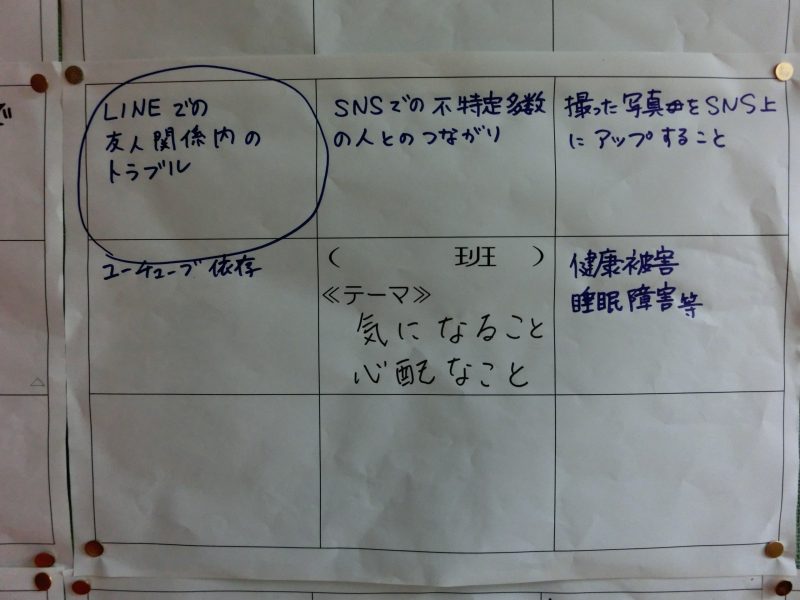 LINEでの
友人関係内の
トラブル
SNSでの不特定多数
の人とのつながり
撮った写真をSNS上
にアップすること
ユーチューブ依存
（　　　班　）
≪テーマ≫
気になること
心配なこと
健康被害
睡眠障害等